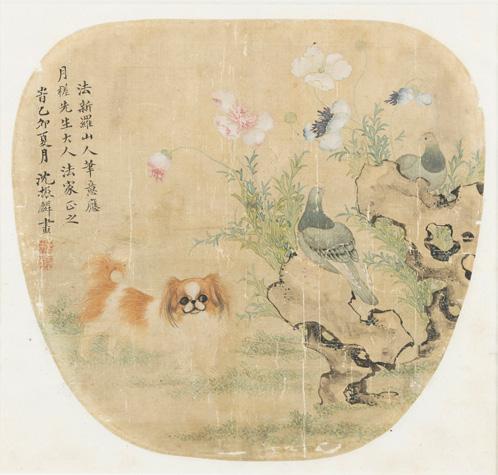 法新羅山人筆意應
月樵先生大人法家正之
峕乙卯夏月沈振麟畫